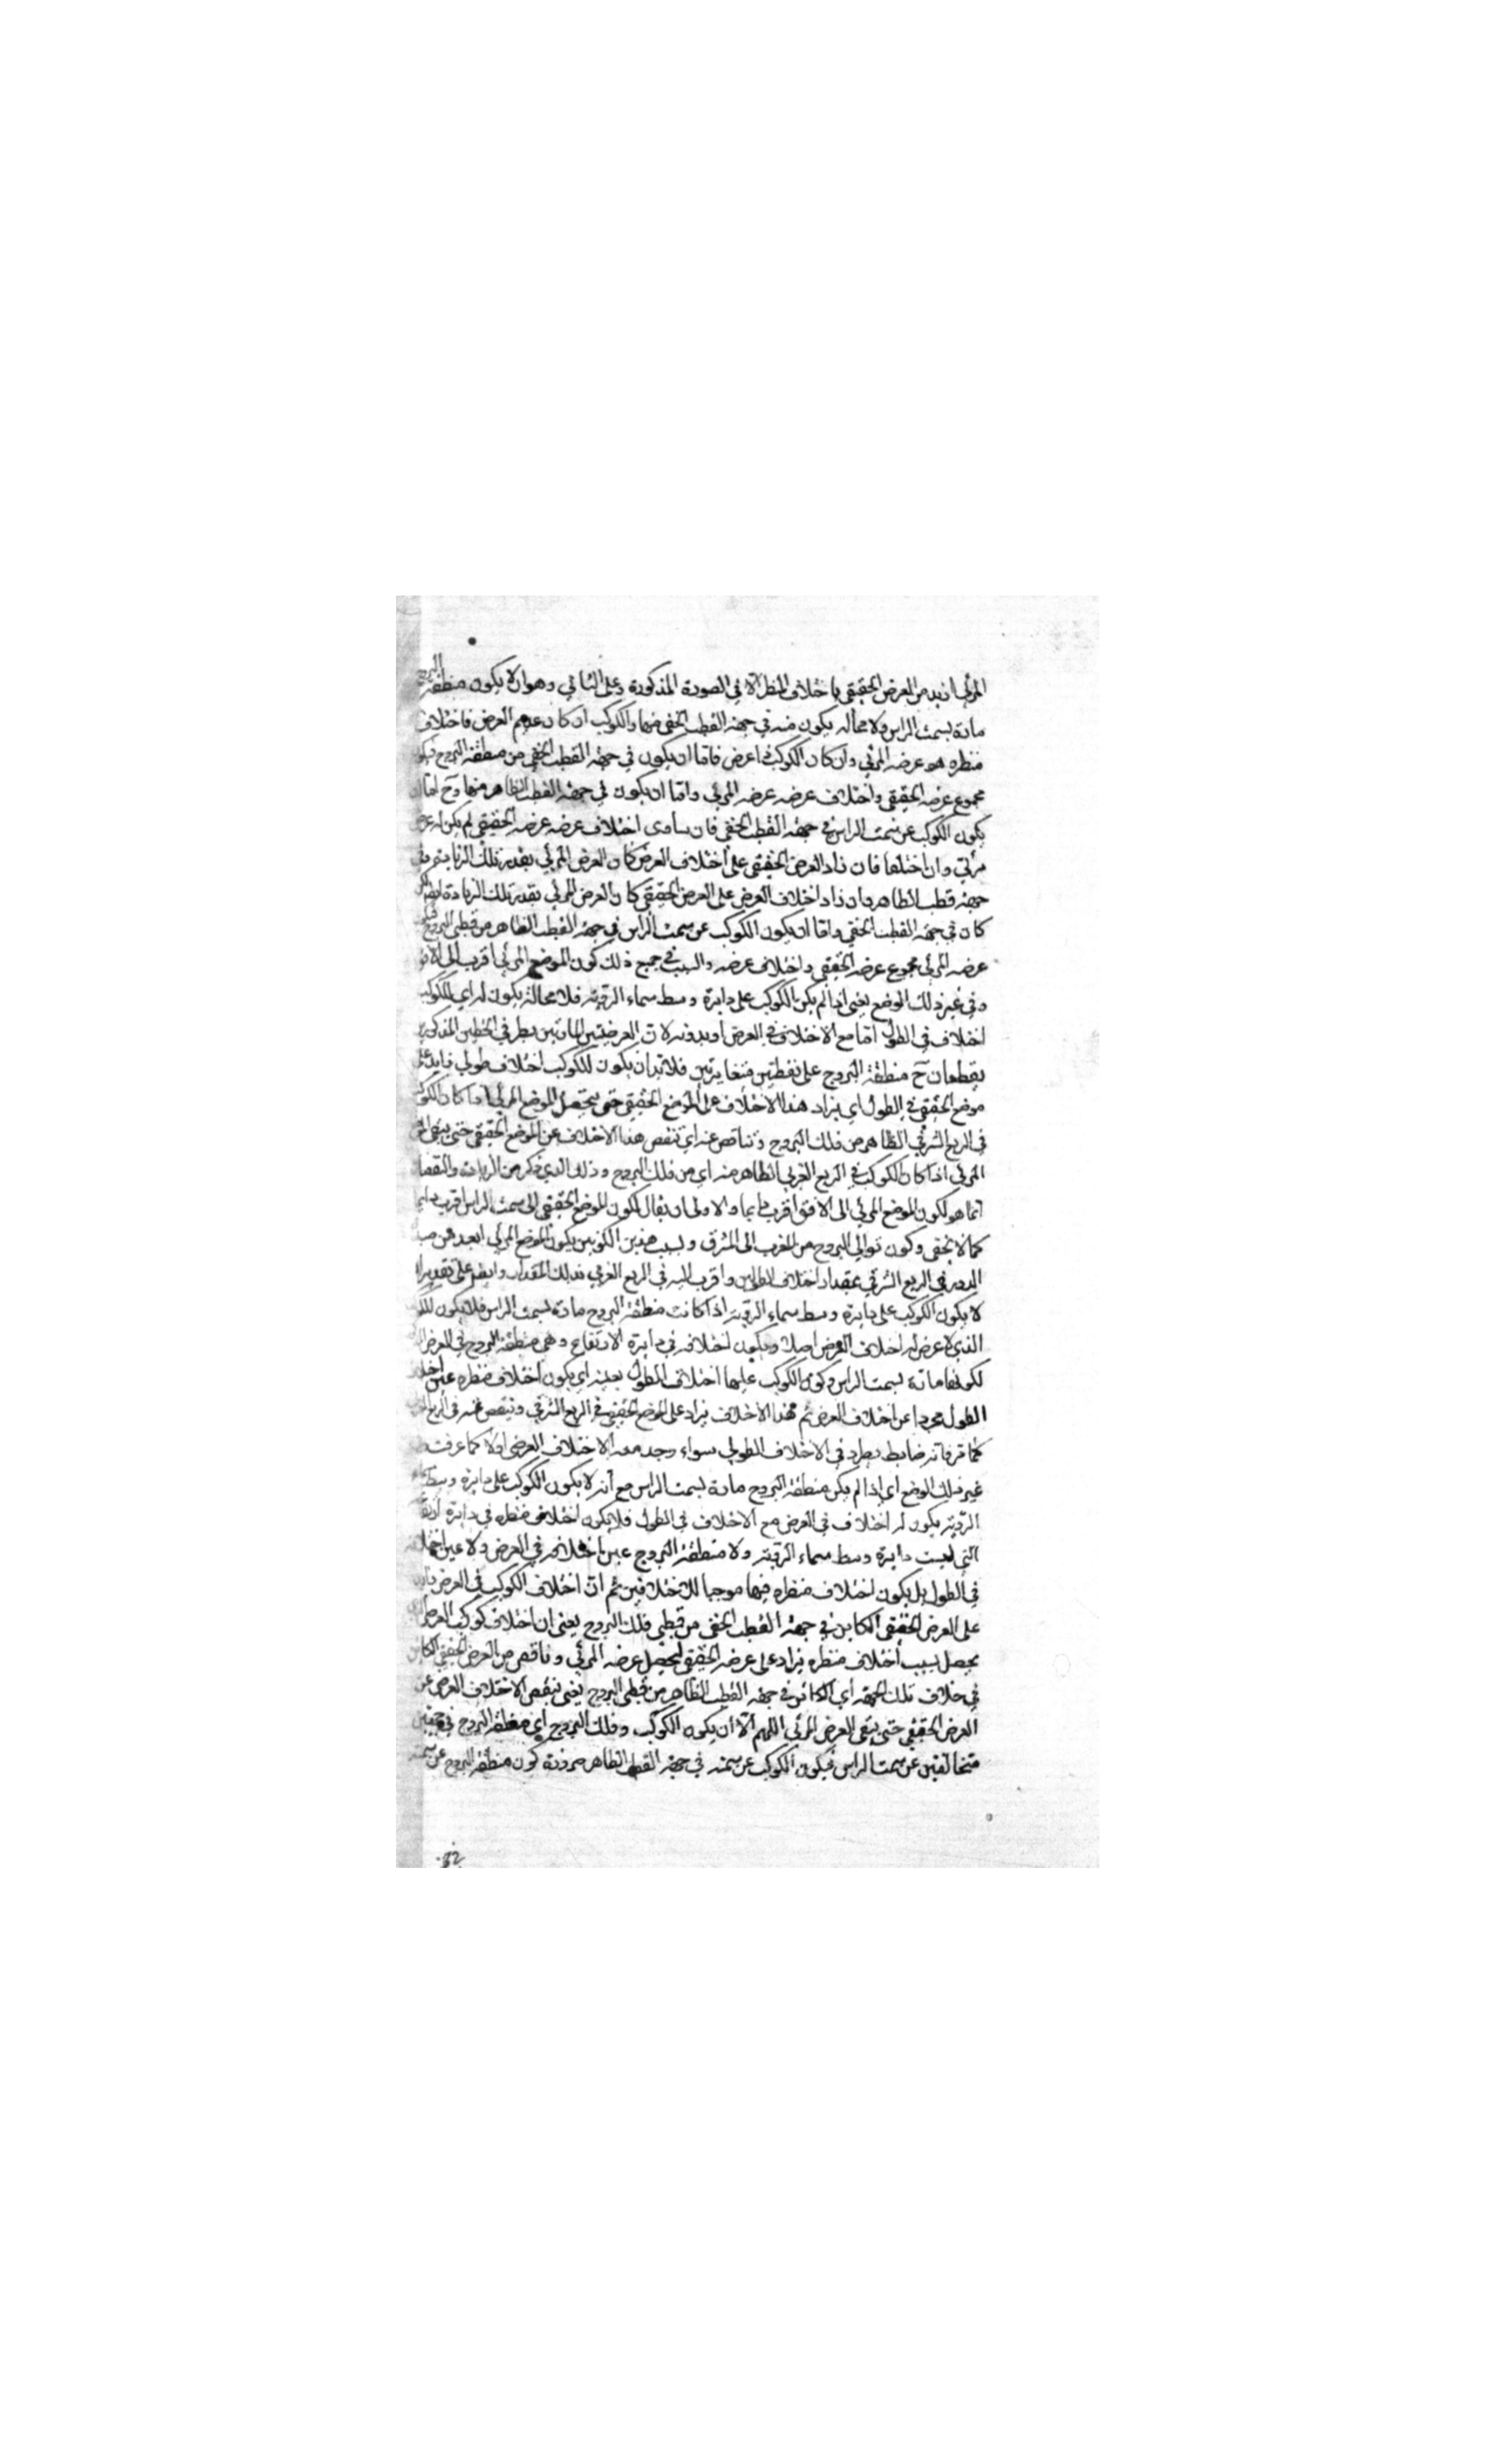 المرئي ازيد من العرض الحقيقي باختلاف المنظر الا في الصورة المذكورة وعلى الثاني وهو ان لا يكون منطقة البروج
مارة بسمت الراس ولا محالة يكون منه في جهة القطب الخفي منهما والكوكب ان كان عديم العرض فاختلاف
منظره هو عرضه المرئي وان كان الكوكب ذا عرض فاما ان يكون في جهة القطب الخفي من منطقة البروج فيكون
مجموع عرضه الحقيقي واختلاف عرضه عرضه المرئي واما ان يكون في جهة القطب الظاهر منها وح اما ان
يكون الكوكب عن سمت الراس في جهة القطب الخفي فان ساوى اختلاف عرضه عرضه الحقيقي لم يكن له عرض
مرئي وان اختلفا فان زاد العرض الحقيقي على اختلاف العرض كان العرض المرئي بقدر تلك الزيادة في
جهة قطب الظاهر وان زاد اختلاف العرض على العرض الحقيقي كان العرض المرئي بقدر تلك الزيادة لكن
كان في جهة القطب الخفي واما ان يكون الكوكب عن سمت الراس في جهة القطب الظاهر من قطبي البروج فيكون
عرضه المرئي مجموع عرضه الحقيقي واختلاف عرضه والسبب في جميع ذلك كون الموضع المرئي اقرب الى الافق
وفي غير ذلك الوضع يعني اذا لم يكن الكوكب على دايرة وسط سماء الروية فلا محالة يكون له اي للكوكب
اختلاف في الطول اما مع الاختلاف في العرض او بدونه لان العرضيتين المارتين بطرفي الخطين المذكورين
يقطعان ح منطقة البروج على نقطتين متغايرتين فلا بد ان يكون للكوكب اختلاف طولي زايد على
موضع الحقيقي في الطول اي يزاد هذا الاختلاف على الموضع الحقيقي حتى يتحصل الموضع المرئي اذا كان الكوكب
في الربع الشرقي الظاهر من فلك البروج وناقص عنه اي ينقص هذا الاختلاف عن الموضع الحقيقي حتى يبقى
المرئي اذا كان الكوكب في الربع الغربي الظاهر منه اي من فلك البروج وذلك الذي ذكر من الزيادة والنقصان
انما هو لكون الموضع المرئي الى الافق اقرب دايما والاولى ان يقال لكون الموضع الحقيقي الى سمت الراس اقرب دايما
كما لا يخفى وكون توالي البروج من المغرب الى المشرق وبسبب هذين الكونين يكون الموضع المرئي ابعد من مبدأ
الدور في الربع الشرقي بمقدار اختلاف الطولين واقرب اليه في الربع الغربي بذلك المقدار وايضا على تقدير ان
لا يكون الكوكب على دايرة وسط سماء الروية اذا كانت منطقة البروج مارة بسمت الراس فلا يكون للكوكب
الذي لا عرض له اختلاف العرض اصلا ويكون اختلافه في دايرة الارتفاع وهي منطقة البروج في العرض
لكونها مارة بسمت الراس وكون الكوكب عليها اختلاف الطول بعينه اي يكون اختلاف منظره عين اختلاف
الطول مجردا عن اختلاف العرض ثم هذا الاختلاف يزاد على الموضع الحقيقي في الربع الشرقي وينقص عنه في الربع الغربي
كما مر فانه ضابط يطرد في الاختلاف الطولي سواء وجد معه الاختلاف العرضي او لا كما عرفت
غير ذلك الوضع اي اذا لم يكن منطقة البروج مارة بسمت الراس مع انه لا يكون الكوكب على دايرة وسط سماء
الروية يكون له اختلاف في العرض مع الاختلاف في الطول فلا يكون اختلاف منظره في دايرة ارتفاع
التي ليست دايرة وسط سماء الروية ولا منطقة البروج عين اختلافه في العرض ولا عين اختلافه
في الطول بل يكون اختلاف منظره فيها موجبا للاختلافين ثم ان اختلاف الكوكب في العرض زايد
على العرض الحقيقي الكاين في جهة القطب الخفي من قطبي فلك البروج يعني ان اختلاف كوكب العرض
يحصل بسبب اختلاف منظره يزاد على عرضه الحقيقي ليحصل عرضه المرئي وناقص من العرض الحقيقي الكاين
في خلاف تلك الجهة اي الكائن في جهة القطب الظاهر من قطبي البروج يعني ينقص الاختلاف العرضي عن
العرض الحقيقي حتى يبقى العرض المرئي اللهم الا ان يكون الكوكب وفلك البروج اي منطقة البروج في جهتين
متخالفتين عن سمت الراس فيكون الكوكب عن سمته في جهة القطب الظاهر ضرورة كون منطقة البروج عن سمته